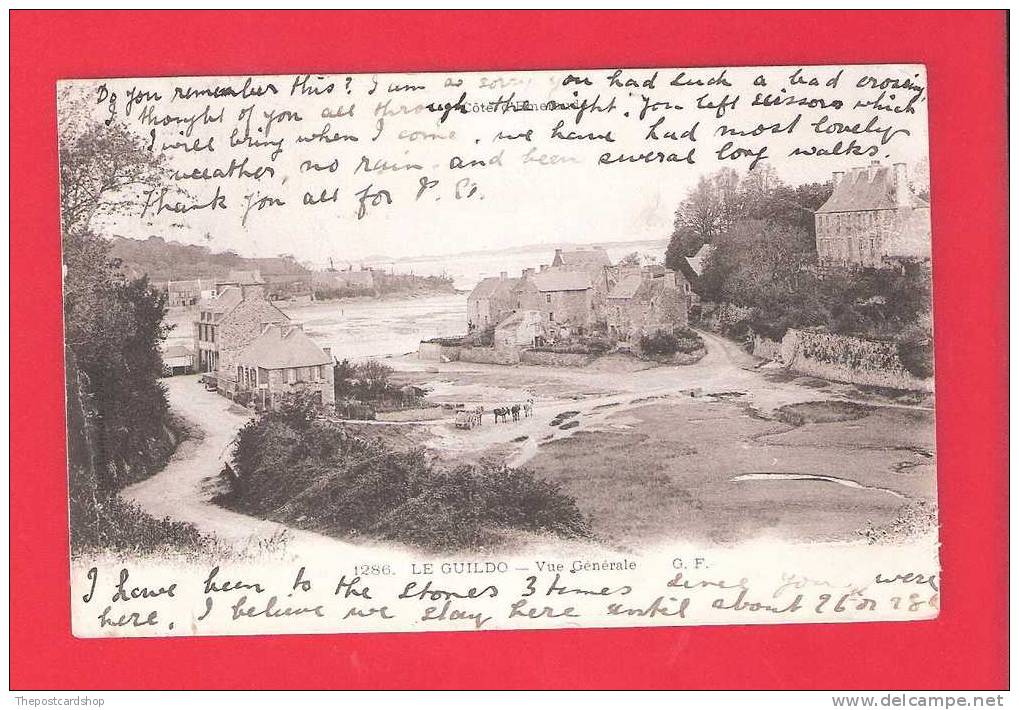 Do you remember this? I am so sorry you had such a bad crossing,
I thought of you all through the night. You left scissors which
I will bring when I come. we have had most lovely
weather, no rain. and been several long walks.
Thank you all for P. Cs.
1286. LE GUILDO — Vue Générale G. F.
I have been to the Stones 3 times since you were
here. I believe we stay here until about 26th or 28th
Thepostcardshop
www.delcampe.net